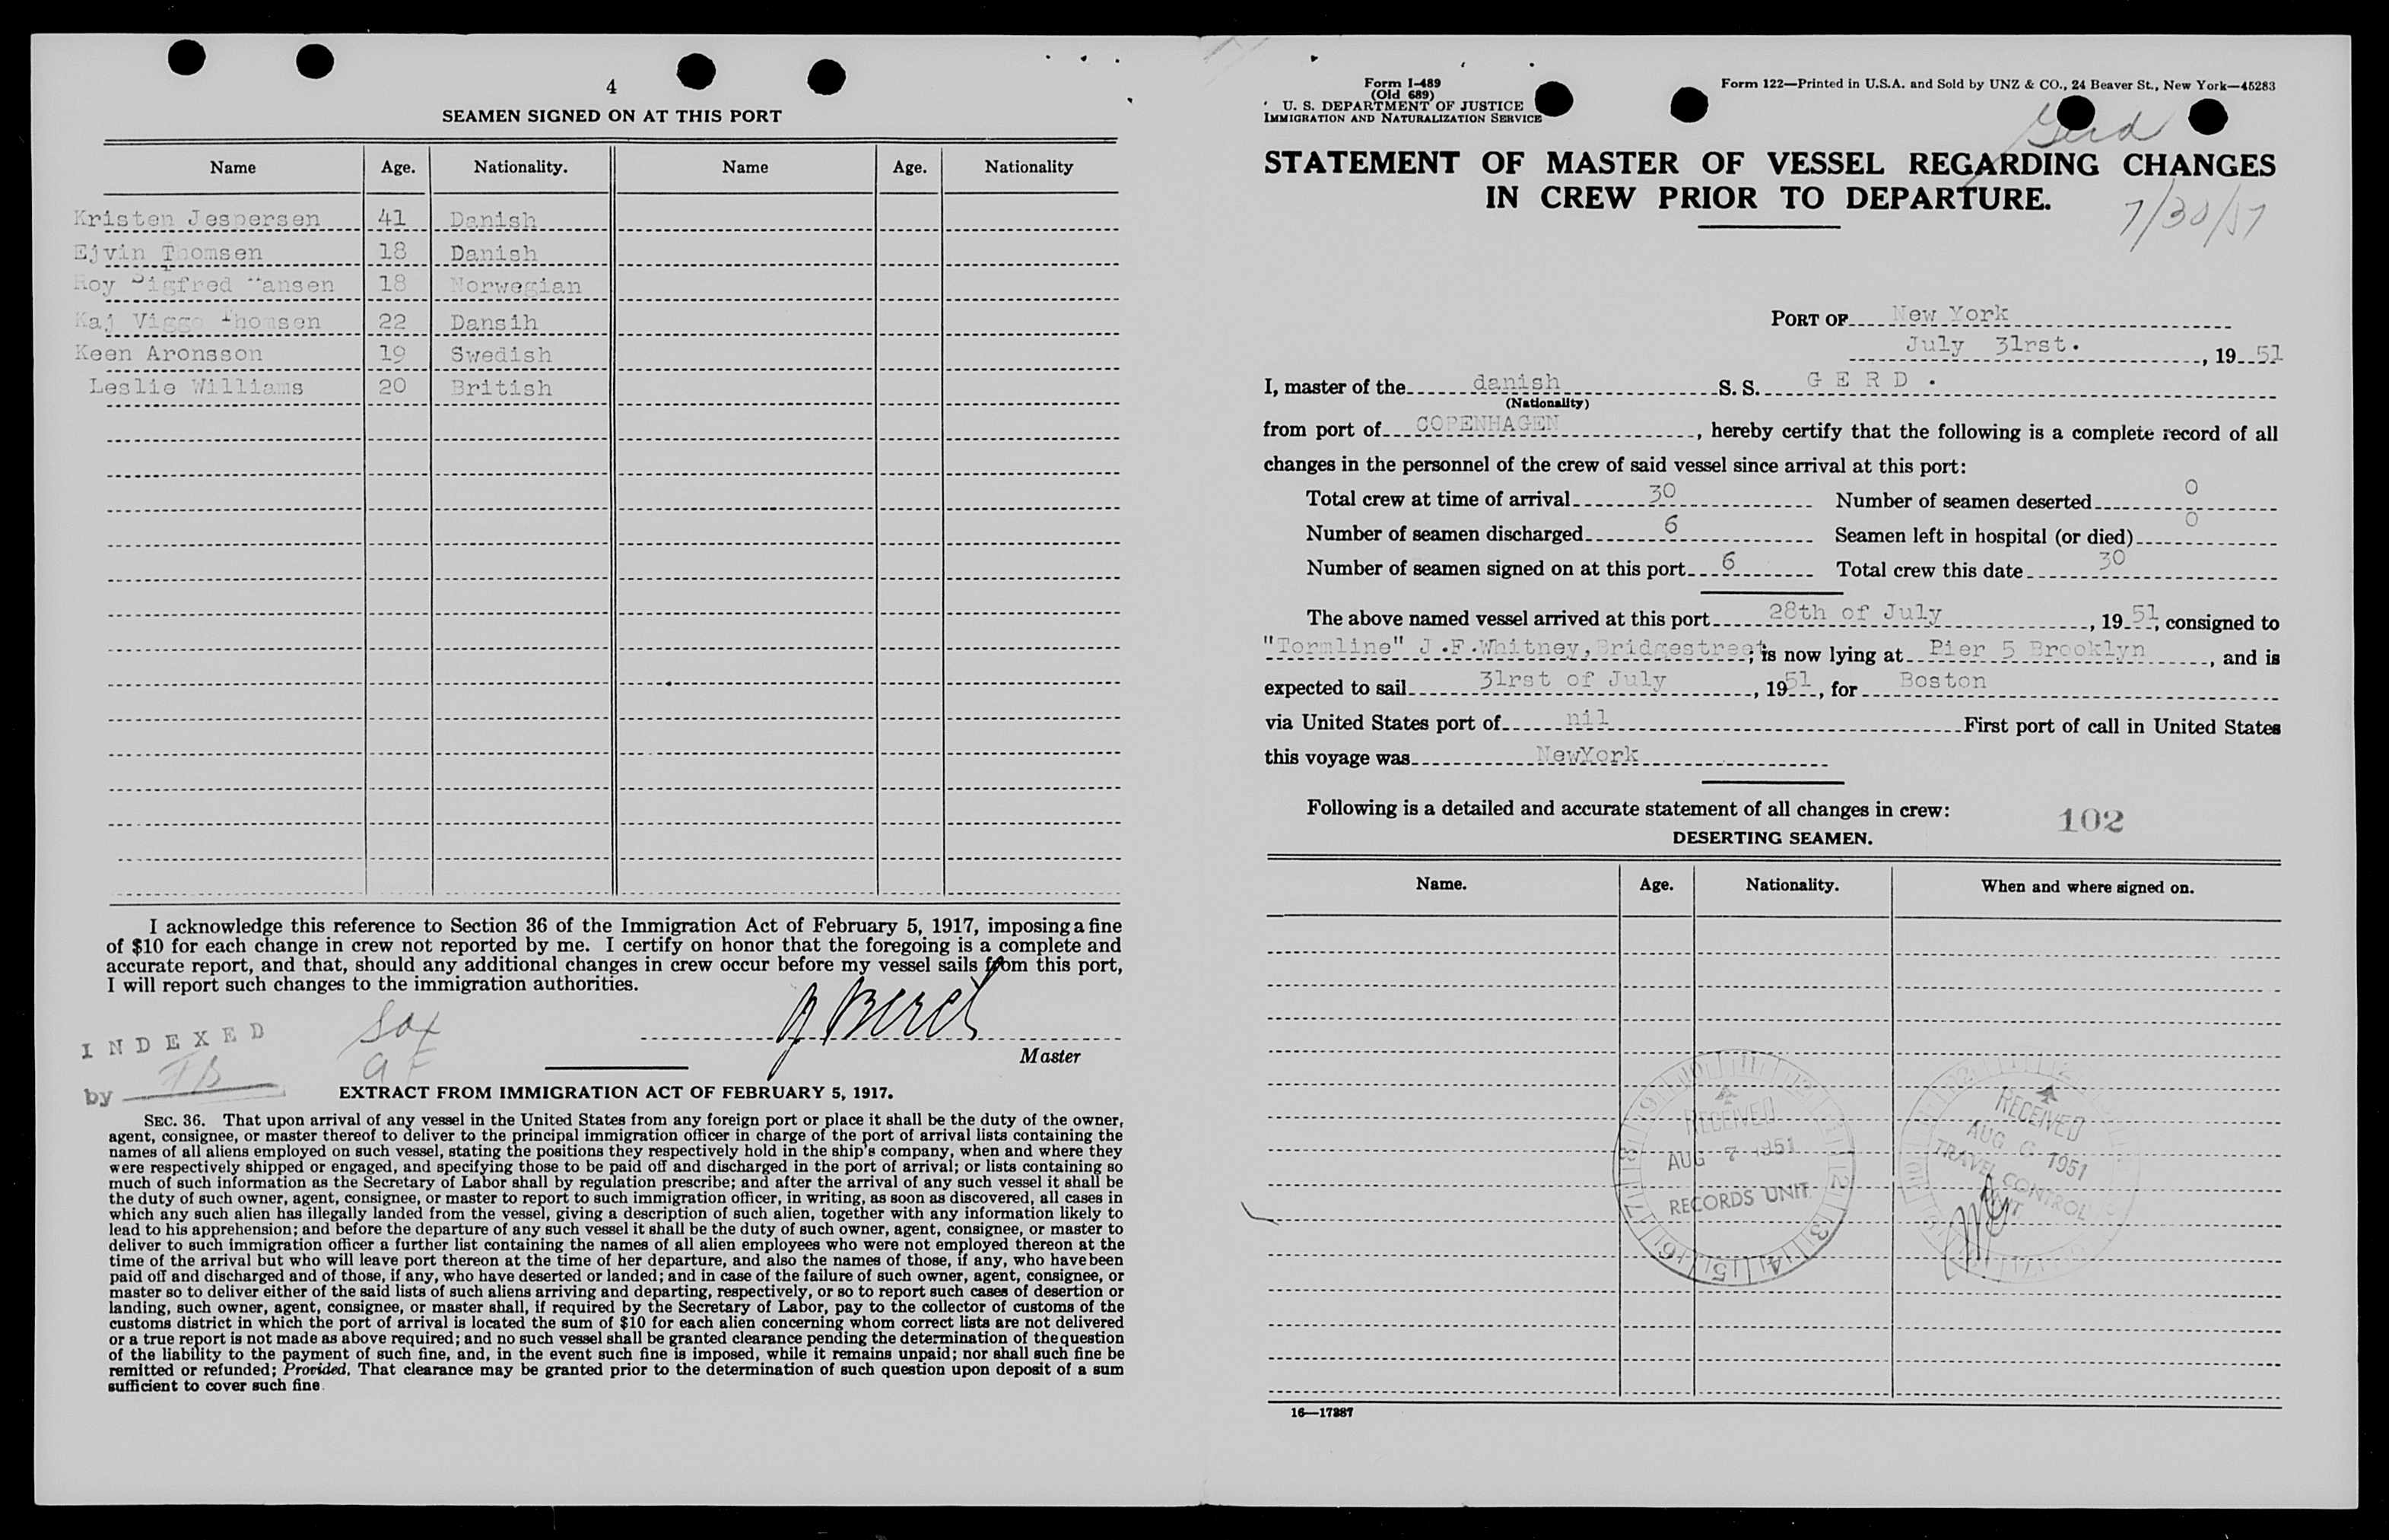 4
SEAMEN SIGNED ON AT THIS PORT
Name Age. Nationality. Name Age. Nationality
Kristen Jespersen 41 Danish
Ejvin Thomsen 18 Danish
Roy Sigfred Hansen 18 Norwegian
Kaj Viggo Thomsen 22 Dansih
Keen Aronsson 19 Swedish
Leslie Williams 20 British
I acknowledge this reference to Section 36 of the Immigration Act of February 5, 1917, imposing a fine
of $10 for each change in crew not reported by me. I certify on honor that the foregoing is a complete and
accurate report, and that, should any additional changes in crew occur before my vessel sails from this port,
I will report such changes to the immigration authorities.
Master
INDEXED
by
EXTRACT FROM IMMIGRATION ACT OF FEBRUARY 5, 1917.
SEC. 36. That upon arrival of any vessel in the United States from any foreign port or place it shall be the duty of the owner,
agent, consignee, or master thereof to deliver to the principal immigration officer in charge of the port of arrival lists containing the
names of all aliens employed on such vessel, stating the positions they respectively hold in the ship's company, when and where they
were respectively shipped or engaged, and specifying those to be paid off and discharged in the port of arrival; or lists containing so
much of such information as the Secretary of Labor shall by regulation prescribe; and after the arrival of any such vessel it shall be
the duty of such owner, agent, consignee, or master to report to such immigration officer, in writing, as soon as discovered, all cases in
which any such alien has illegally landed from the vessel, giving a description of such alien, together with any information likely to
lead to his apprehension; and before the departure of any such vessel it shall be the duty of such owner, agent, consignee, or master to
deliver to such immigration officer a further list containing the names of all alien employees who were not employed thereon at the
time of the arrival but who will leave port thereon at the time of her departure, and also the names of those, if any, who have been
paid off and discharged and of those, if any, who have deserted or landed; and in case of the failure of such owner, agent, consignee, or
master so to deliver either of the said lists of such aliens arriving and departing, respectively, or so to report such cases of desertion or
landing, such owner, agent, consignee, or master shall, if required by the Secretary of Labor, pay to the collector of customs of the
customs district in which the port of arrival is located the sum of $10 for each alien concerning whom correct lists are not delivered
or a true report is not made as above required; and no such vessel shall be granted clearance pending the determination of the question
of the liability to the payment of such fine, and, in the event such fine is imposed, while it remains unpaid; nor shall such fine be
remitted or refunded; Provided, That clearance may be granted prior to the determination of such question upon deposit of a sum
sufficient to cover such fine.
Form I-489
(Old 689)
U. S. DEPARTMENT OF JUSTICE
IMMIGRATION AND NATURALIZATION SERVICE
Form 122—Printed in U.S.A. and Sold by UNZ & CO., 24 Beaver St., New York—45283
Gerd
STATEMENT OF MASTER OF VESSEL REGARDING CHANGES
IN CREW PRIOR TO DEPARTURE.
7/30/51
PORT OF New York
July 31rst. , 19 51
I, master of the danish S. S. G E R D .
(Nationality)
from port of COPENHAGEN , hereby certify that the following is a complete record of all
changes in the personnel of the crew of said vessel since arrival at this port:
Total crew at time of arrival 30 Number of seamen deserted 0
Number of seamen discharged 6 Seamen left in hospital (or died) 0
Number of seamen signed on at this port 6 Total crew this date 30
The above named vessel arrived at this port 28th of July , 19 51, consigned to
"Tormline" J.F.Whitney,Bridgestreet; is now lying at Pier 5 Brooklyn , and is
expected to sail 31rst of July , 19 51, for Boston
via United States port of nil First port of call in United States
this voyage was NewYork
Following is a detailed and accurate statement of all changes in crew:
102
DESERTING SEAMEN.
Name. Age. Nationality. When and where signed on.
RECEIVED
AUG 7 1951
RECORDS UNIT
RECEIVED
AUG 1951
TRAVEL CONTROL
UNIT
16—17887